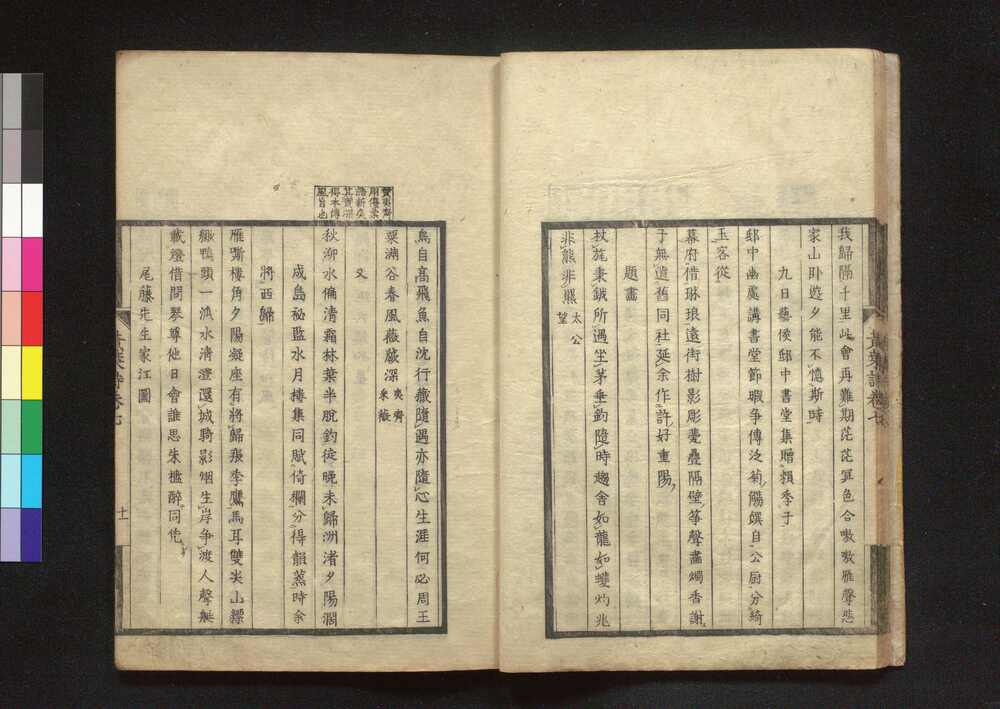 我歸隔千里此會再難期茫茫冥色合嗷嗷雁聲悲
家山卧遊夕能不憶斯時
九日藝侯邸中書堂集贈賴季子
邸中幽處講書堂節暇爭傳泛菊觴饌自公厨分綺
玉客從
幕府借琳琅遠街樹影彫甍疊隔壁箏聲畫燭香謝
子無遺舊同社延余作許好重陽
題畫
杖旄秉鉞所遇坐茅垂釣隨時趨舍如龍如蠖灼兆
非熊非羆 太公望
鳥自高飛魚自沈行藏隨遇亦隨心生涯何必周王
粟滿谷春風薇蕨深 夷齊采薇
又
秋渺水偏清霜林葉半脫釣徒晚未歸洲渚夕陽濶
成島祕監水月樓集同賦倚欄分得韻蒸時余
將西歸
雁嘶樓角夕陽凝座有將歸張季鷹馬耳雙尖山縹
緲鴨頭一派水清澄還城騎影烟生岸爭渡人聲艇
載燈借問琴尊他日會誰思朱檻醉同凭
尾藤先生家江圖
黃葉詩卷七
十一